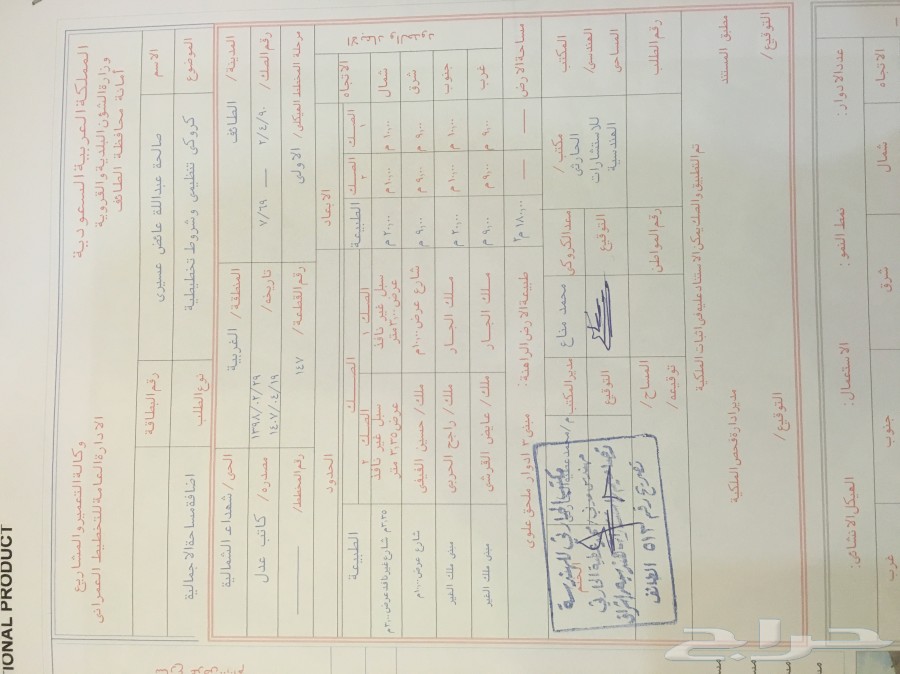 المملكة العربية السعودية
وزارة الشون البلدية والقروية
أمانة محافظة الطائف
وكالة التعمير والمشاريع
الادارة العامة للتخطيط العمراني
الاسم
صالحة عبداللة عائض عسيري
رقم البطاقة
الموضوع
كروكي تنظيمي وشروط تخطيطية
نوع الطلب
اضافة مساحة الاجمالية
المدينة / الطائف
المنطقة / الغربية
الحي / شهداء الشمالية
رقم الصك / ٢/٤/٩٠ — ٧/٦٩
تاريخه / ١٣٩٨/٠٢/٢٩
١٤٠٧/٠٤/١٩
مصدره / كاتب عدل
مرحلة المخطط الهيكلي / الاولى
رقم القطعة / ١٤٧
رقم المخطط /
الابعاد
الحدود
الاتجاه
الصك ١
الصك ٢
الطبيعة
الصك
الصك ١
الصك ٢
الطبيعة
شمال
١٠,٠٠ م
١٠,٠٠ م
٢٠,٠٠ م
سيل غير نافذ عرض ٣,٠٠ متر
سيل غير نافذ عرض ٣,٣٥ متر
٣,٣٥م شارع غير نافذ عرض ٣,٠٠م
شرق
٩,٠٠ م
٩,٠٠ م
٩,٠٠ م
شارع عرض ١٠,٠٠م
ملك / حسين الفيفي
شارع عرض ١٠,٠٠م
جنوب
١٠,٠٠ م
١٠,٠٠ م
٢٠,٠٠ م
ملك الجار
ملك / راجح الحربي
مبنى ملك الغير
غرب
٩,٠٠ م
٩,٠٠ م
٩,٠٠ م
ملك الجار
ملك / عايض القرشي
مبنى ملك الغير
مساحة الارض
١٨٠,٠٠ م٢
طبيعة الارض الراهنة :
مبنى ٣ ادوار ملحق علوي
المكتب الهندسي / المساحي
مكتب / الحارثي للاستشارات الهندسية
معد الكروكي
محمد مناع
مدير المكتب
التوقيع
التوقيع
الختم
رقم الطلب
رقم المواطن
المساح /
توقيعه /
تم التطبيق والصك يمكن الاستناد عليه في اثبات الملكية
مطبق المستند
مدير ادارة فحص الملكية
التوقيع /
التوقيع /
تصريح رقم ٥١٣ الطائف
عدد الادوار :
نمط النمو :
الاستعمال :
الهيكل الانشائي :
الاتجاه
شمال
شرق
جنوب
غرب
TIONAL PRODUCT
حراج